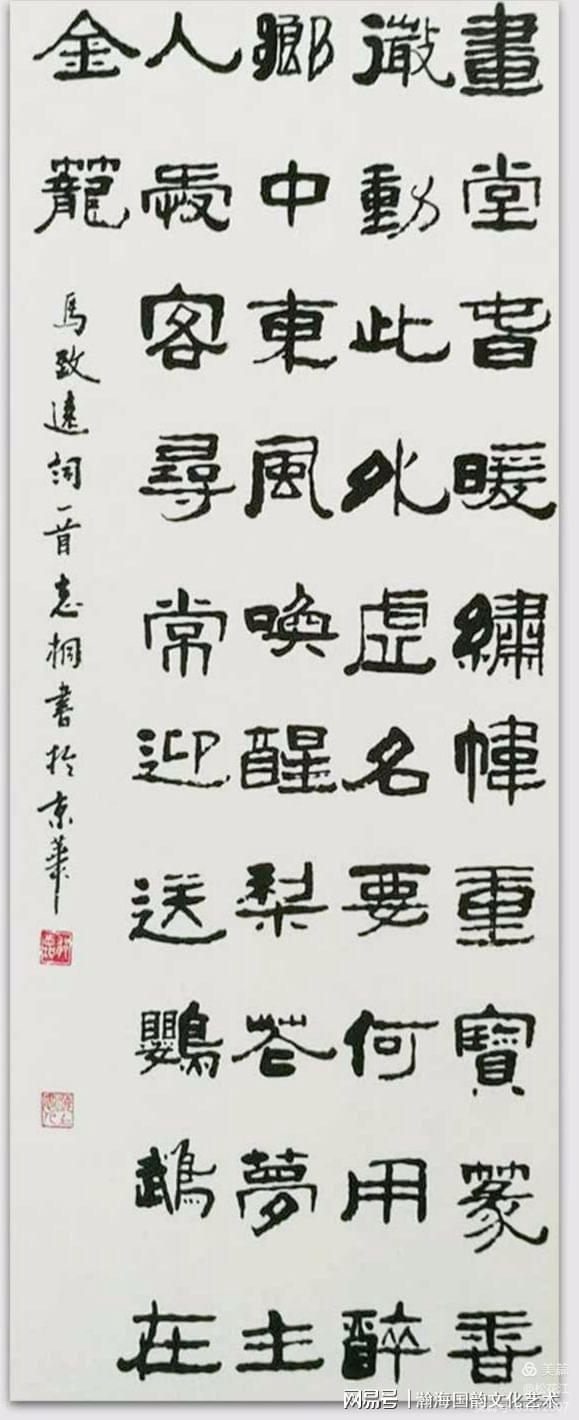 畫堂旾暖繡幃重寶篆香
微動此外虛名要何用醉
鄉中東風喚醒梨花夢主
人愛客尋常迎送鸚鵡在
金籠
馬致遠詞一首志桐書於京華
美篇
@松花江
网易号 | 瀚海国韵文化艺术